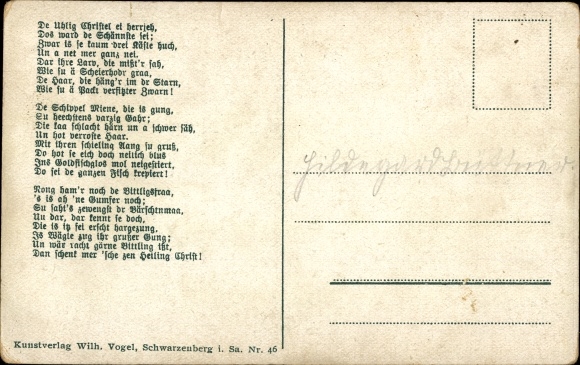 De Uhlig Christel ei herrjeh,
Dos ward de Schännste sei;
Zwar is se kaum drei Käste huch,
Un a net mer ganz nei.
Dar ihre Larv, die mißt'r sah,
Wie su ä Scheierhodr graa,
De Haar, die häng'r im dr Starn,
Wie su ä Packt verfitzter Zwarn!
De Schippel Miene, die is gung,
Su heechstens varzig Gahr;
Die kaa schlacht härn un a schwer säh,
Un hot verroste Haar.
Mit ihren schieling Aang su gruß,
Do hot se eich doch neilich blus
Ins Goldfischglos mol neigestiert,
Do sei de ganzen Fisch krepiert!
Nong ham'r noch de Bittligsfraa,
's is ah 'ne Gumfer noch;
Su saht's zewengst dr Bärschtnmaa.
Un dar, dar kennt se doch,
Die is itz sei erscht hargezung.
Is Wägle zug ihr großer Gung;
Un wär racht görne Bittling ißt,
Dan schenkt mer 'sche zen Heiling Christ!
Hildegard
Kunstverlag Wilh. Vogel, Schwarzenberg i. Sa. Nr. 46